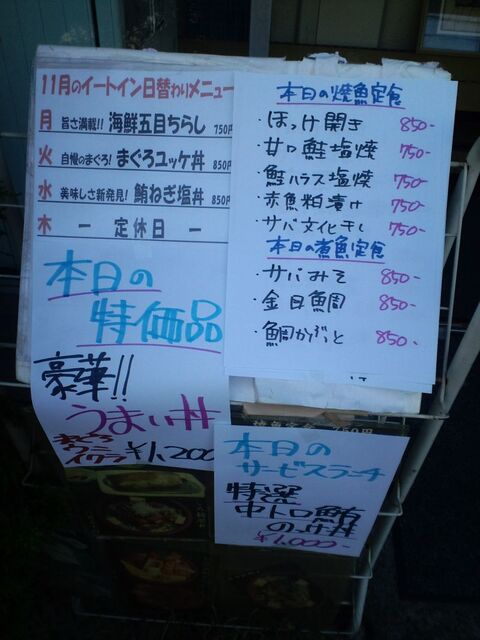 11月のイートイン日替わりメニュー
月 旨さ満載!! 海鮮五目ちらし 750円
火 自慢のまぐろ! まぐろユッケ丼 850円
水 美味しさ新発見! 鮪ねぎ塩丼 850円
木 ー 定休日 ー
本日の
特価品
豪華!!
うまい丼
イクラ ¥1,200
本日の焼魚定食
・ほっけ開き 850-
・甘口鮭塩焼 750-
・鮭ハラス塩焼 750-
・赤魚粕漬け 750-
・サバ文化干し 750-
本日の煮魚定食
・サバみそ 850-
・金目鯛 850-
・鯛かぶと 850-
本日の
サービスランチ
特選
中トロ鮪
の丼
¥1,000-